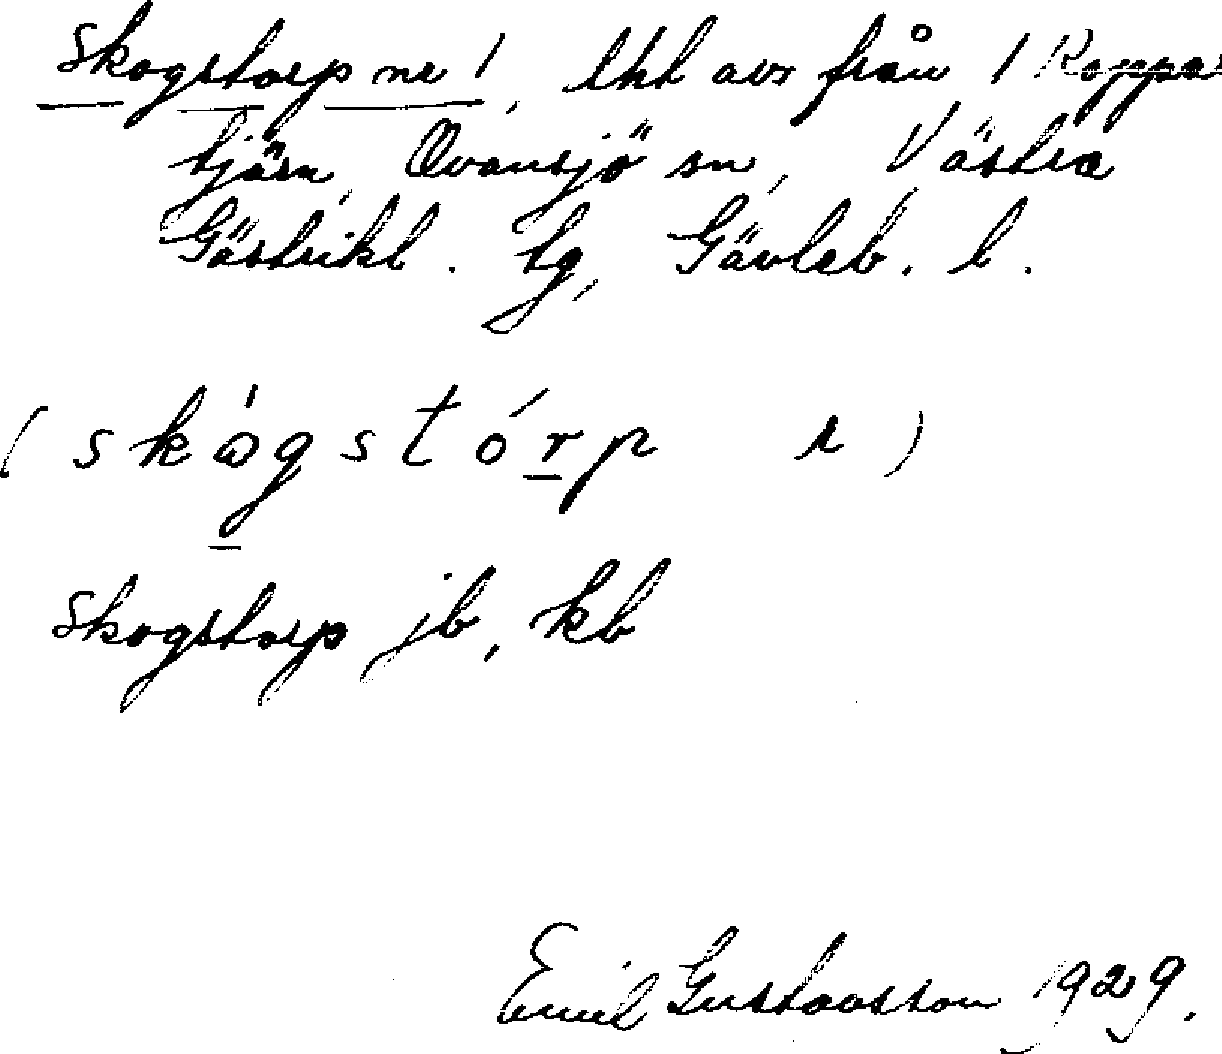 Skogstorp nr 1, lht avs från 1 Roppa
tjärn, Ovansjö sn, Västra
Gästrikl. tg, Gävleb. l.
(skògstórp ı)
Skogstorp jb, kb
Emil Gustavsson 1929.